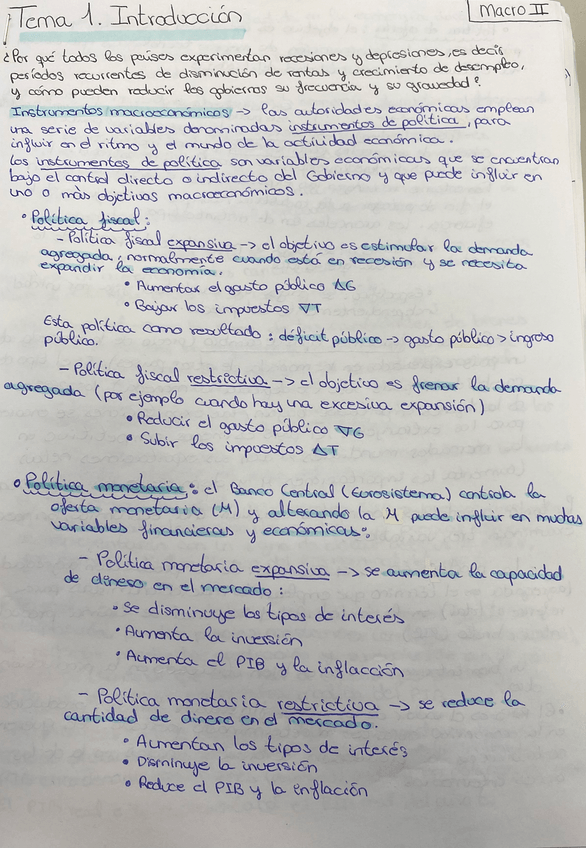 Tema 1. Introducción
Macro II
¿Por qué todos los países experimentan recesiones y depresiones, es decir
períodos recurrentes de disminución de rentas y crecimiento de desempleo,
y cómo pueden reducir los gobiernos su frecuencia y su gravedad?
Instrumentos macroeconómicos -> las autoridades económicas emplean
una serie de variables denominadas instrumentos de política, para
influir en el ritmo y el mundo de la actividad económica.
Los instrumentos de política son variables económicas que se encuentran
bajo el control directo o indirecto del Gobierno y que puede influir en
uno o más objetivos macroeconómicos.
• Política fiscal:
- Política fiscal expansiva -> el objetivo es estimular la demanda
agregada, normalmente cuando está en recesión y se necesita
expandir la economía.
• Aumentar el gasto público ΔG
• Bajar los impuestos ∇T
Esta política como resultado: déficit público -> gasto público > ingreso
público.
- Política fiscal restrictiva -> el objetivo es frenar la demanda
agregada (por ejemplo cuando hay una excesiva expansión)
• Reducir el gasto público ∇G
• Subir los impuestos ΔT
• Política monetaria: el Banco Central (Eurosistema) controla la
oferta monetaria (M) y alterando la M puede influir en muchas
variables financieras y económicas:
- Política monetaria expansiva -> se aumenta la capacidad
de dinero en el mercado:
• Se disminuye los tipos de interés
• Aumenta la inversión
• Aumenta el PIB y la inflacción
- Política monetaria restrictiva -> se reduce la
cantidad de dinero en el mercado.
• Aumentan los tipos de interés
• Disminuye la inversión
• Reduce el PIB y la inflación